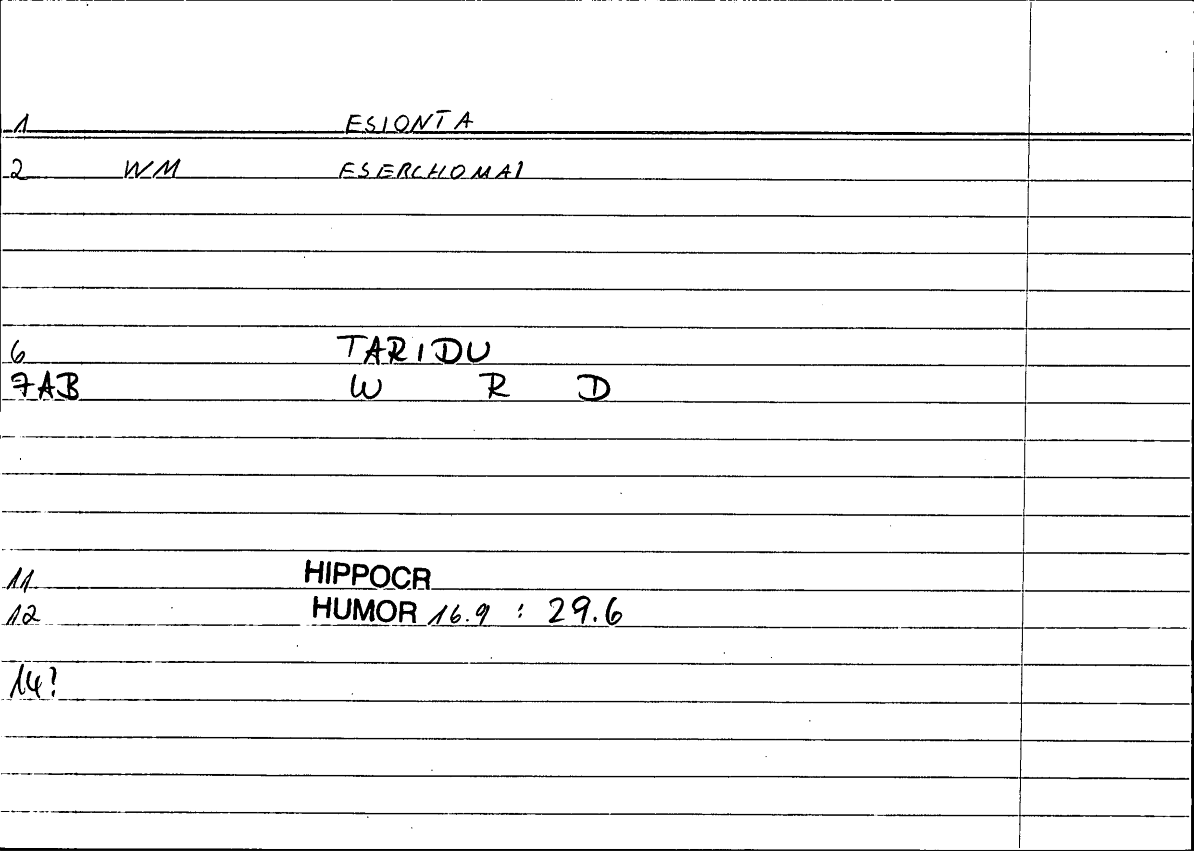 1 ESIONTA
2 WM ESERCHOMAI
6 TARIDU
7AB W R D
11 HIPPOCR
12 HUMOR 16.9 : 29.6
14?